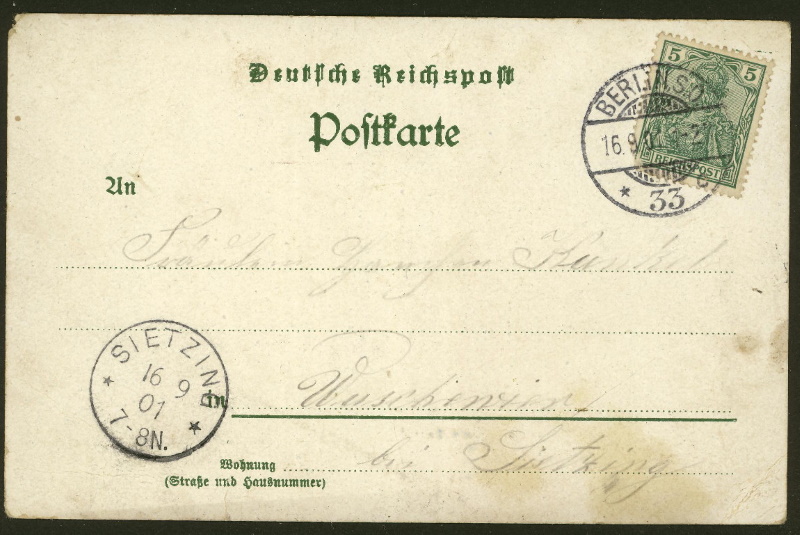 Deutsche Reichspost
Postkarte
5 5
REICHSPOST
BERLIN S.O.
16.9.01 1-2
33
An
Fräulein
SIETZING
16 9
01
7-8N.
in
bei Sietzing
Wohnung
(Straße und Hausnummer)